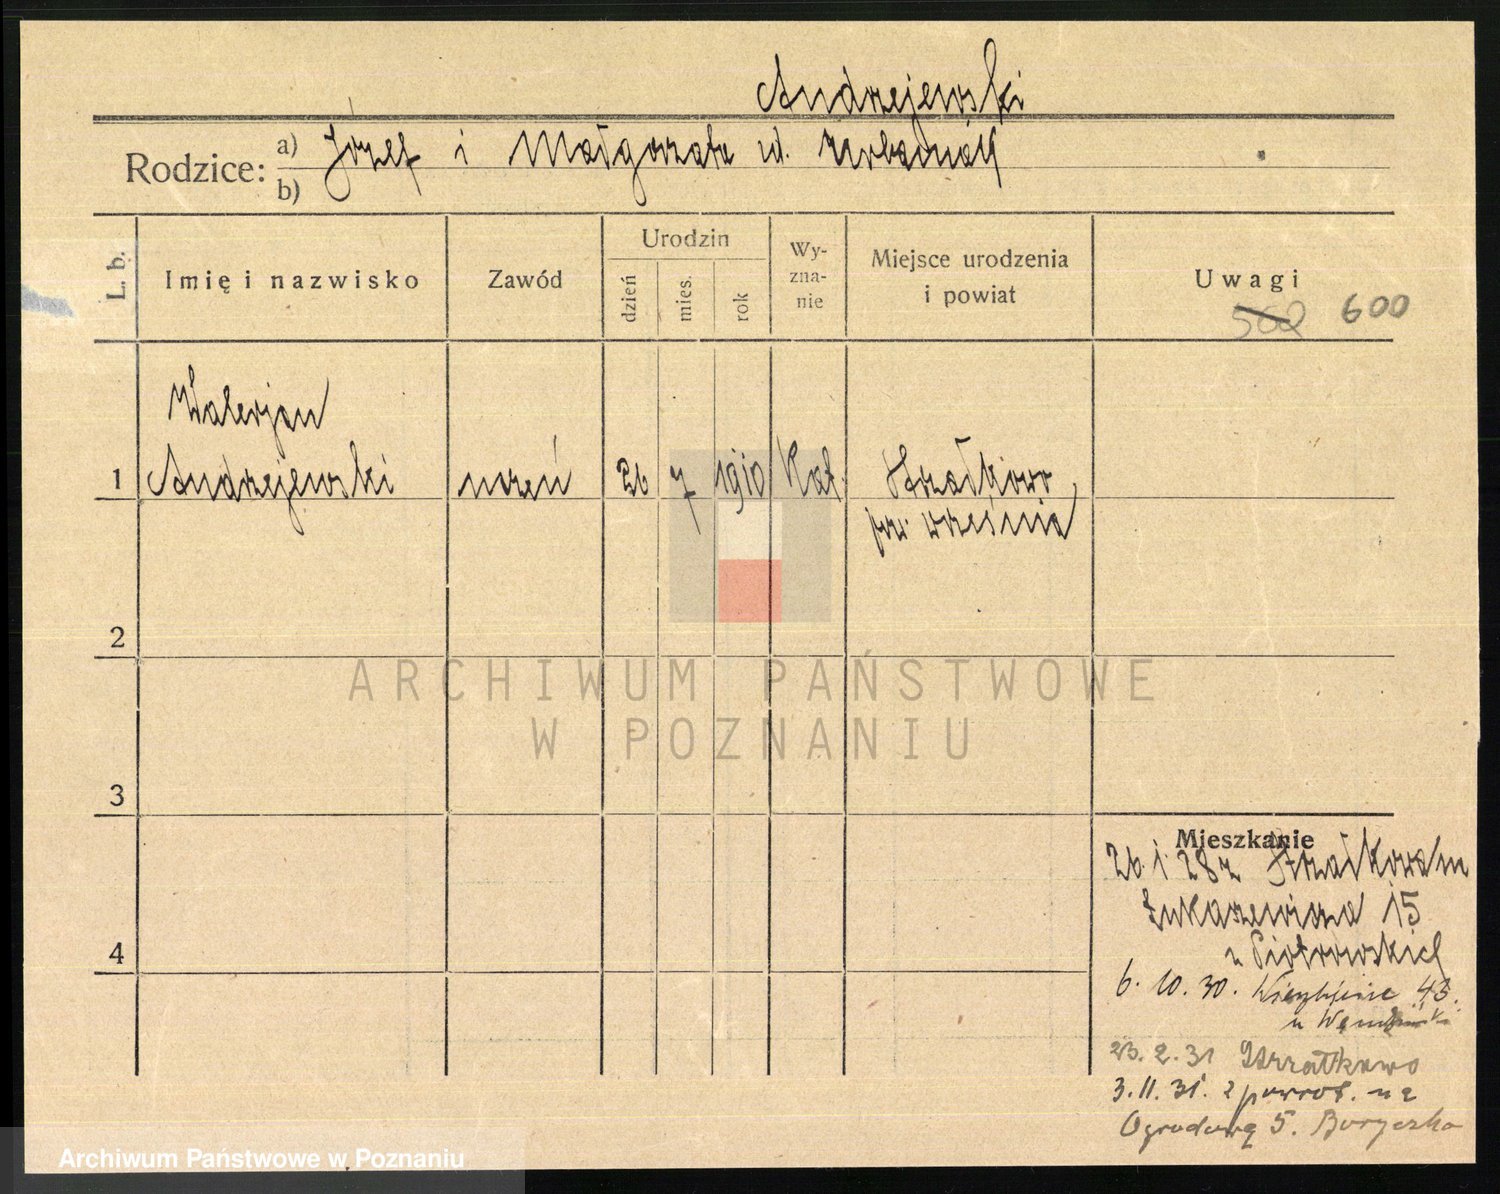 Andrzejewski
Rodzice: a) Józef i Małgorzata ud. Urbaniak
b)
L. b.
Imię i nazwisko
Zawód
Urodzin
dzień
mies.
rok
Wy-
zna-
nie
Miejsce urodzenia
i powiat
Uwagi
562 600
Walerjan
1 Andrzejewski uczeń 26 7 1910 Kat. Strzałkowo
pw. Września
2
ARCHIWUM PAŃSTWOWE
W POZNANIU
3
Mieszkanie
26.1.28 z Strzałkowa
Łukaszewicza 15
u Piotrowskich
4
6.10.30. 43.
u
23.2.31 Strzałkowo
3.11.31. z powrot. na
Ogrodową 5. Boryczka
Archiwum Państwowe w Poznaniu